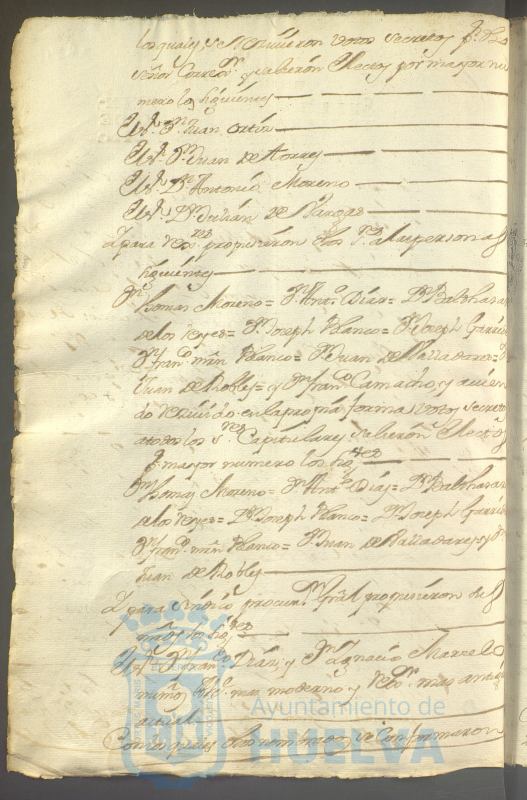 los quales se Recivieron votos secretos pr. el
señor Correxr. y salieron Electos por mayor nu
mero los siguientes
Dn. Juan ortiz
Dn. Juan de torres
Dn. Antonio Moreno
Dn. Julian de Vargas
Y para propusieron dhos Sres. a las personas
siguientes
Dn. thomas Moreno= Dn. Anto. Diaz= Dn. Balthasar
de los Reyes= Dn. Joseph Blanco= Dn. Joseph Garrido
Dn. franco. min Blanco= Dn. Juan de Valladares=
Juan de Robles= y Dn. franco. Camacho, y avien
do Recivido en la propria forma votos secretos
a todos los Sres. Capitulares salieron Electos
pr. mayor numero los sigtes.
Dn. thomas Moreno= Dn. Anto. Diaz= Dn. Balthasar
de los Reyes= Dn. Joseph Blanco= Dn. Joseph Garrido
Dn. franco. min Blanco= Dn. Juan de Valladares y Dn.
Juan de Robles
Y para sindico procur. Gral propusieron dhos
los sigtes.
Dn. franco. Diaz, y Dn. Ygnacio Marcelo
mas moderno y mas antiguo
actual
Con los quales dhos nombrados se Conformaron
Ayuntamiento de
HUELVA